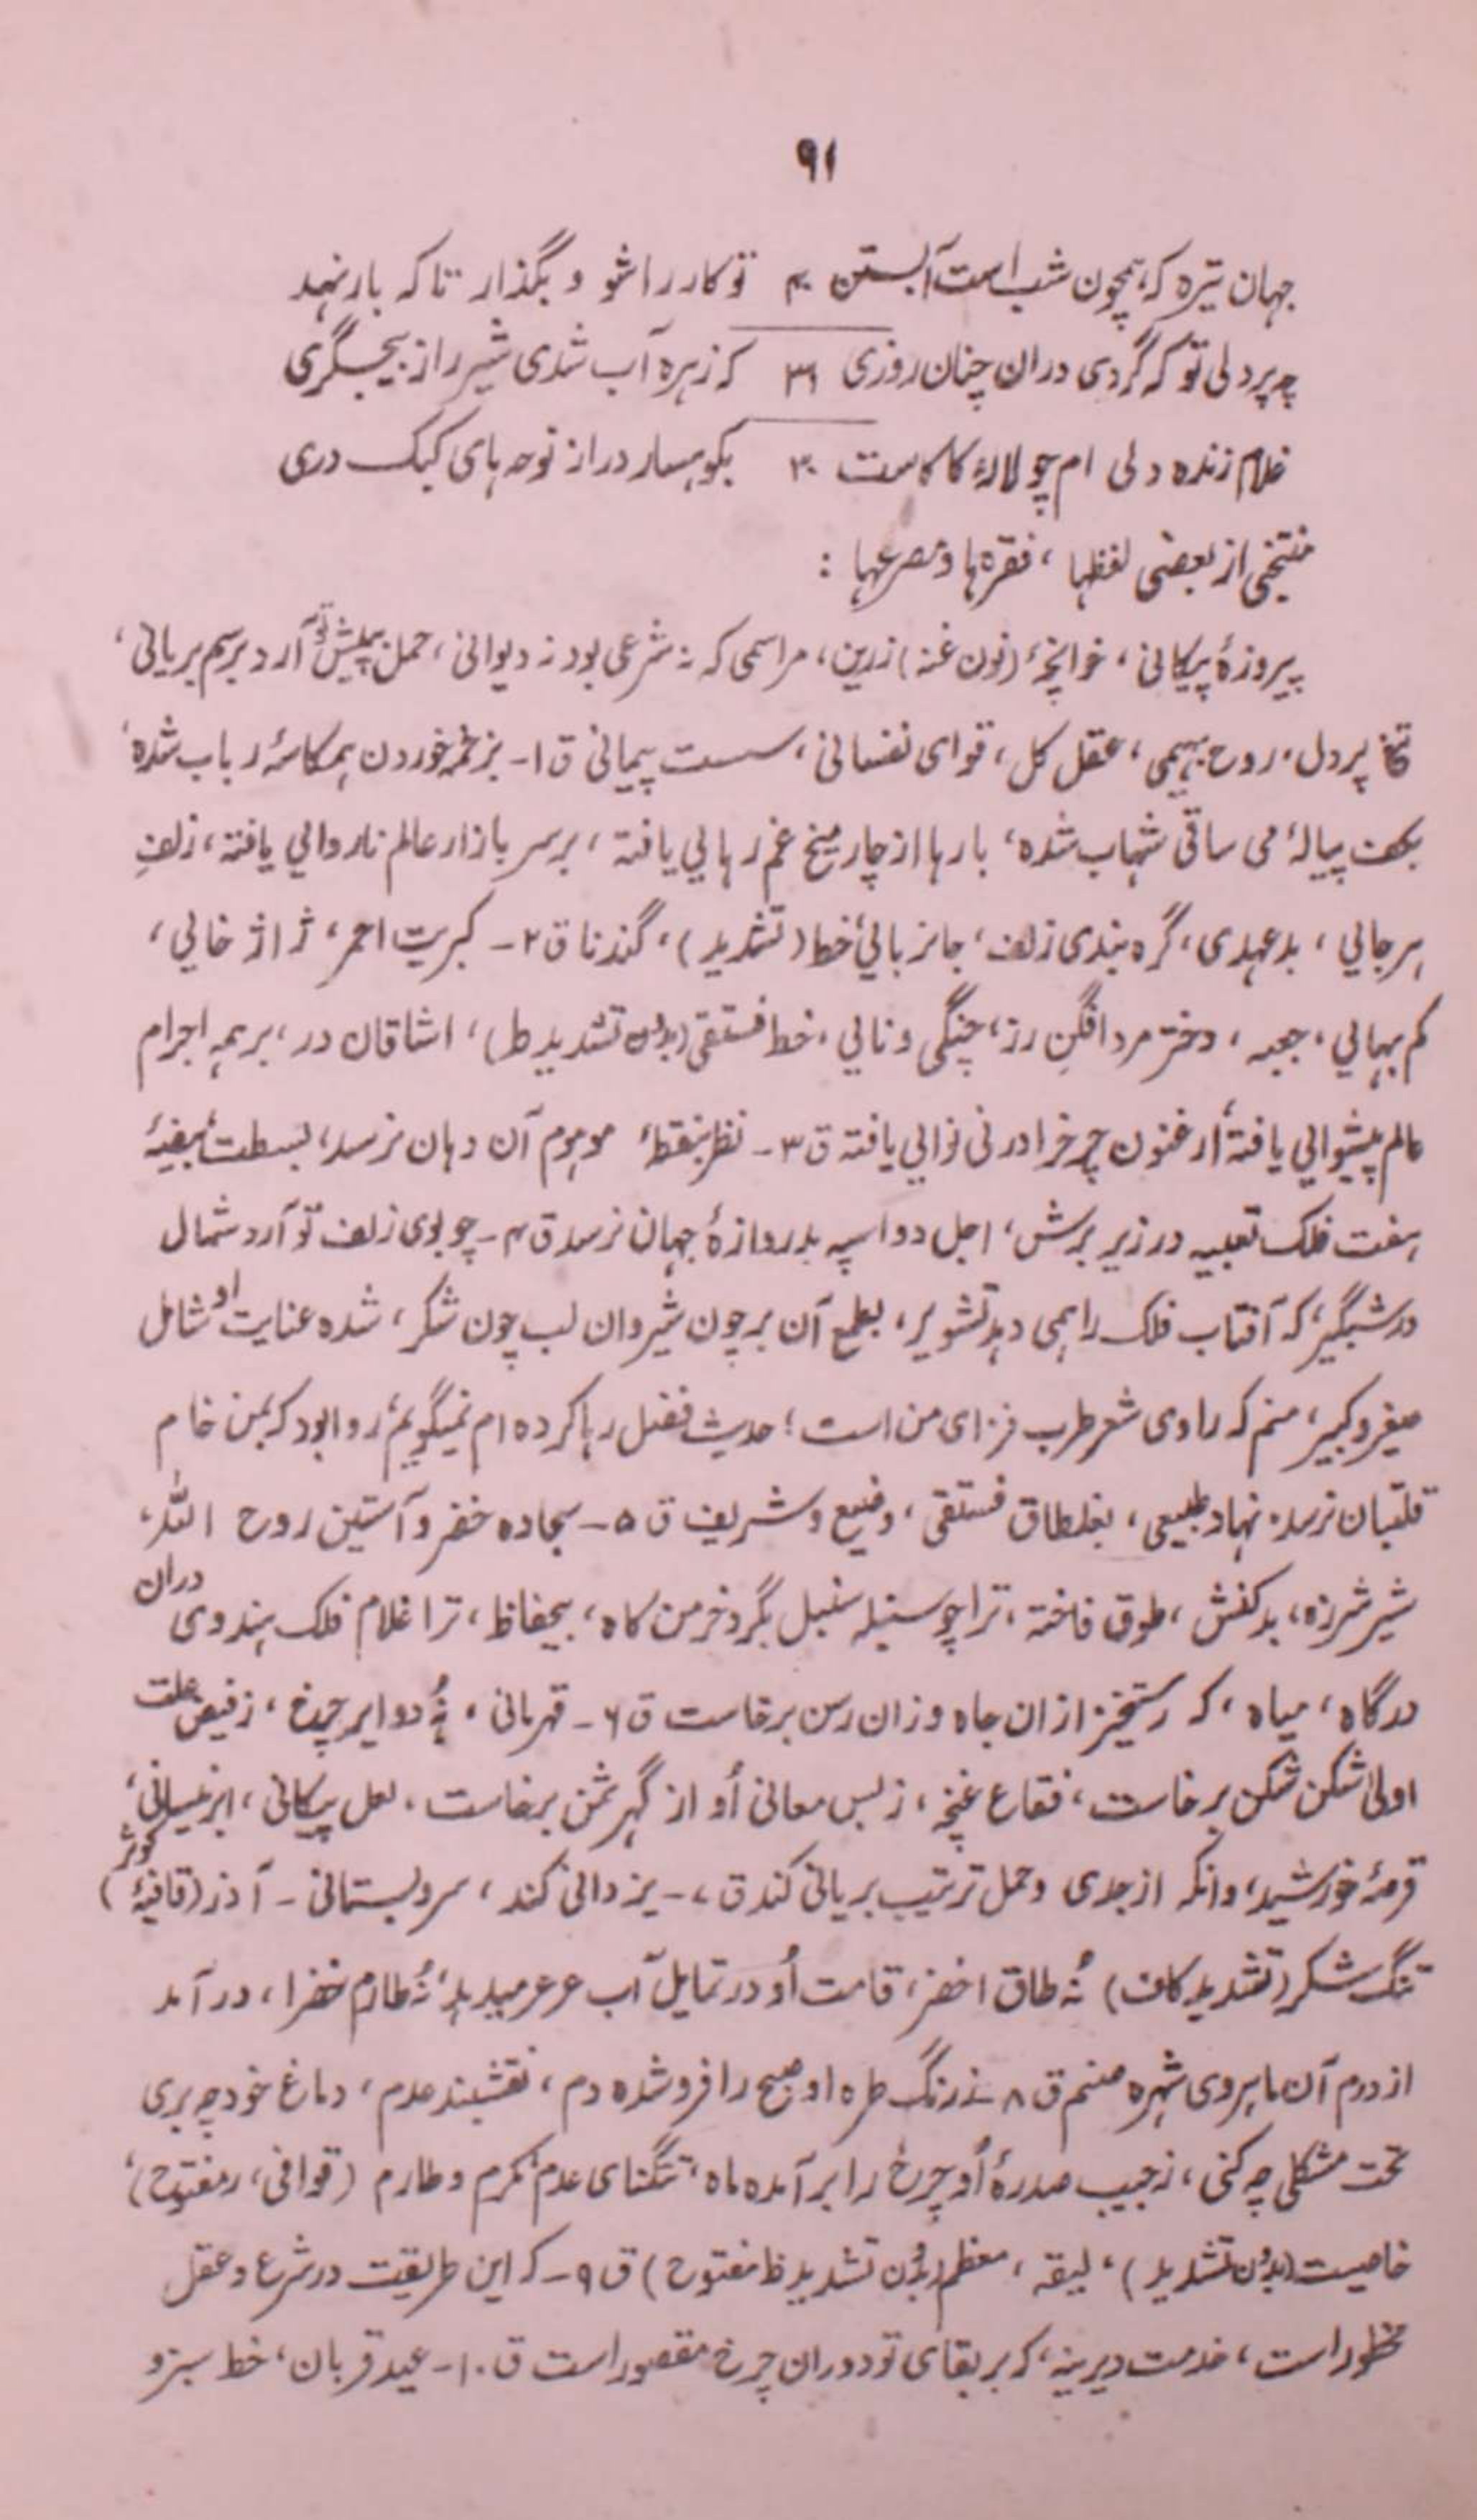 ۹۱
جہان تیرہ کہ ہمچون شب است آبستن ۴۰ تو کار راشو و بگذار تا کہ بار نہد
چہ پردلی تو کہ گردی دران چنان روزی ۳۱ کہ زہرہ آب شدی شیر را ز بیجگری
غلام زندہ دلی ام چو لالۂ کا کاست ۳۰ بکوہسار در از نوحہ ہای کبک دری
منتخبی از بعضی لفظہا، فقرہ ہا و مصرعہا :
پیروزۂ پیکانی، خوانچۂ (نون غنہ) زرین، مراسمی کہ نہ شرعی بود نہ دیوانی، حمل بپیش تو آرد برسم بریانی،
پردل، روح بہیمی، عقل کل، قوای نفسانی، سست پیمانی ق ۱- بزخمہ خوردن ہمکاسۂ رباب شدہ،
بکف پیالۂ می ساقی شہاب شدہ، بارہا از چار میخ غم رہایی یافتہ، بر سر بازار عالم ناروایی یافتہ، زلفِ
ہرجایی، بدعہدی، گرہ بندی زلف، جانزبائیٔ خط (تشدید)، گندنا ق ۲- کبریت احمر، ژاژ خایی،
کم بہایی، جعبہ، دختر مرد افگنِ رز، چنگی و نایی، خط فستقی (بدون تشدید ط)، اشاقان در، بر ہمہ اجرام
عالم پیشوایی یافتہ، ارغنون چرخ را در نی نوایی یافتہ ق ۳- نظر بنقطۂ موہوم آن دہان نرسد، بسطت بیضۂ
ہفت فلک تعبیہ در زیر پرش، اجل دو اسپہ بدروازۂ جہان نرسد ق ۴- چو بوی زلف تو آرد شمال
در شبگیر، کہ آفتاب فلک را ہمی دہد تشویر، بطمع آن بر چون شیر وان لب چون شکر، شدہ عنایت او شامل
صغیر و کبیر، منم کہ راوی شعر طرب فزای من است؛ حدیث فضل رہا کردہ ام نمیگویم، روا بود کہ بمن خام
قلتبان نرسد، نہاد طبیعی، بغلطاق فستقی، وضیع و شریف ق ۵- سجادہ خضر و آستین روح اللہ،
شیر شرزہ، بدکنش، طوق فاختہ، ترا چو سنبلہ سنبل بگرد خرمن کاہ، بیحفاظ، ترا غلام فلک ہندوی دران
درگاہ، میاہ، کہ رستخیز ازان چاہ وزان رسن برخاست ق ۶- قہرمانی، نُہ دوایر چرخ، ز فیض علت
اولیٰ شکن شکن برخاست، فقاع غنچہ، ز بس معانی اُو از گہر ثمن برخاست، لعل پیکانی، ابر نیسانی،
قرصۂ خورشید، وانکہ از جدی و حمل ترتیب بریانی کند ق ۷- یزدانی کند، سرو بستانی - آذر (قافیۂ کوثر)
تنگ شکر (تشدید کاف) نُہ طاق اخضر، قامت اُو در تمایل آب عرعر میدہد، نُہ طارم خضرا، در آمد
از درم آن ماہروی شہرہ صنم ق ۸- ز رنگ طرہ او صبح را فرو شدہ دم، نقشبند عدم، دماغ خود چہ بری
تحت مشکلی چہ کنی، ز جیب صدرۂ اُو چرخ را بر آمدہ ماہ، تنگنای عدم، مکرم و طارم (قوافی، ر مفتوح)،
خاصیت (بدون تشدید)، لیقہ، معظم (بدون تشدید ظ مفتوح) ق ۹- کہ این طریقت در شرع و عقل
محظور است، خدمت دیرینہ، کہ بر بقای تو دوران چرخ مقصور است ق ۱۰- عید قربان، خط سبز و